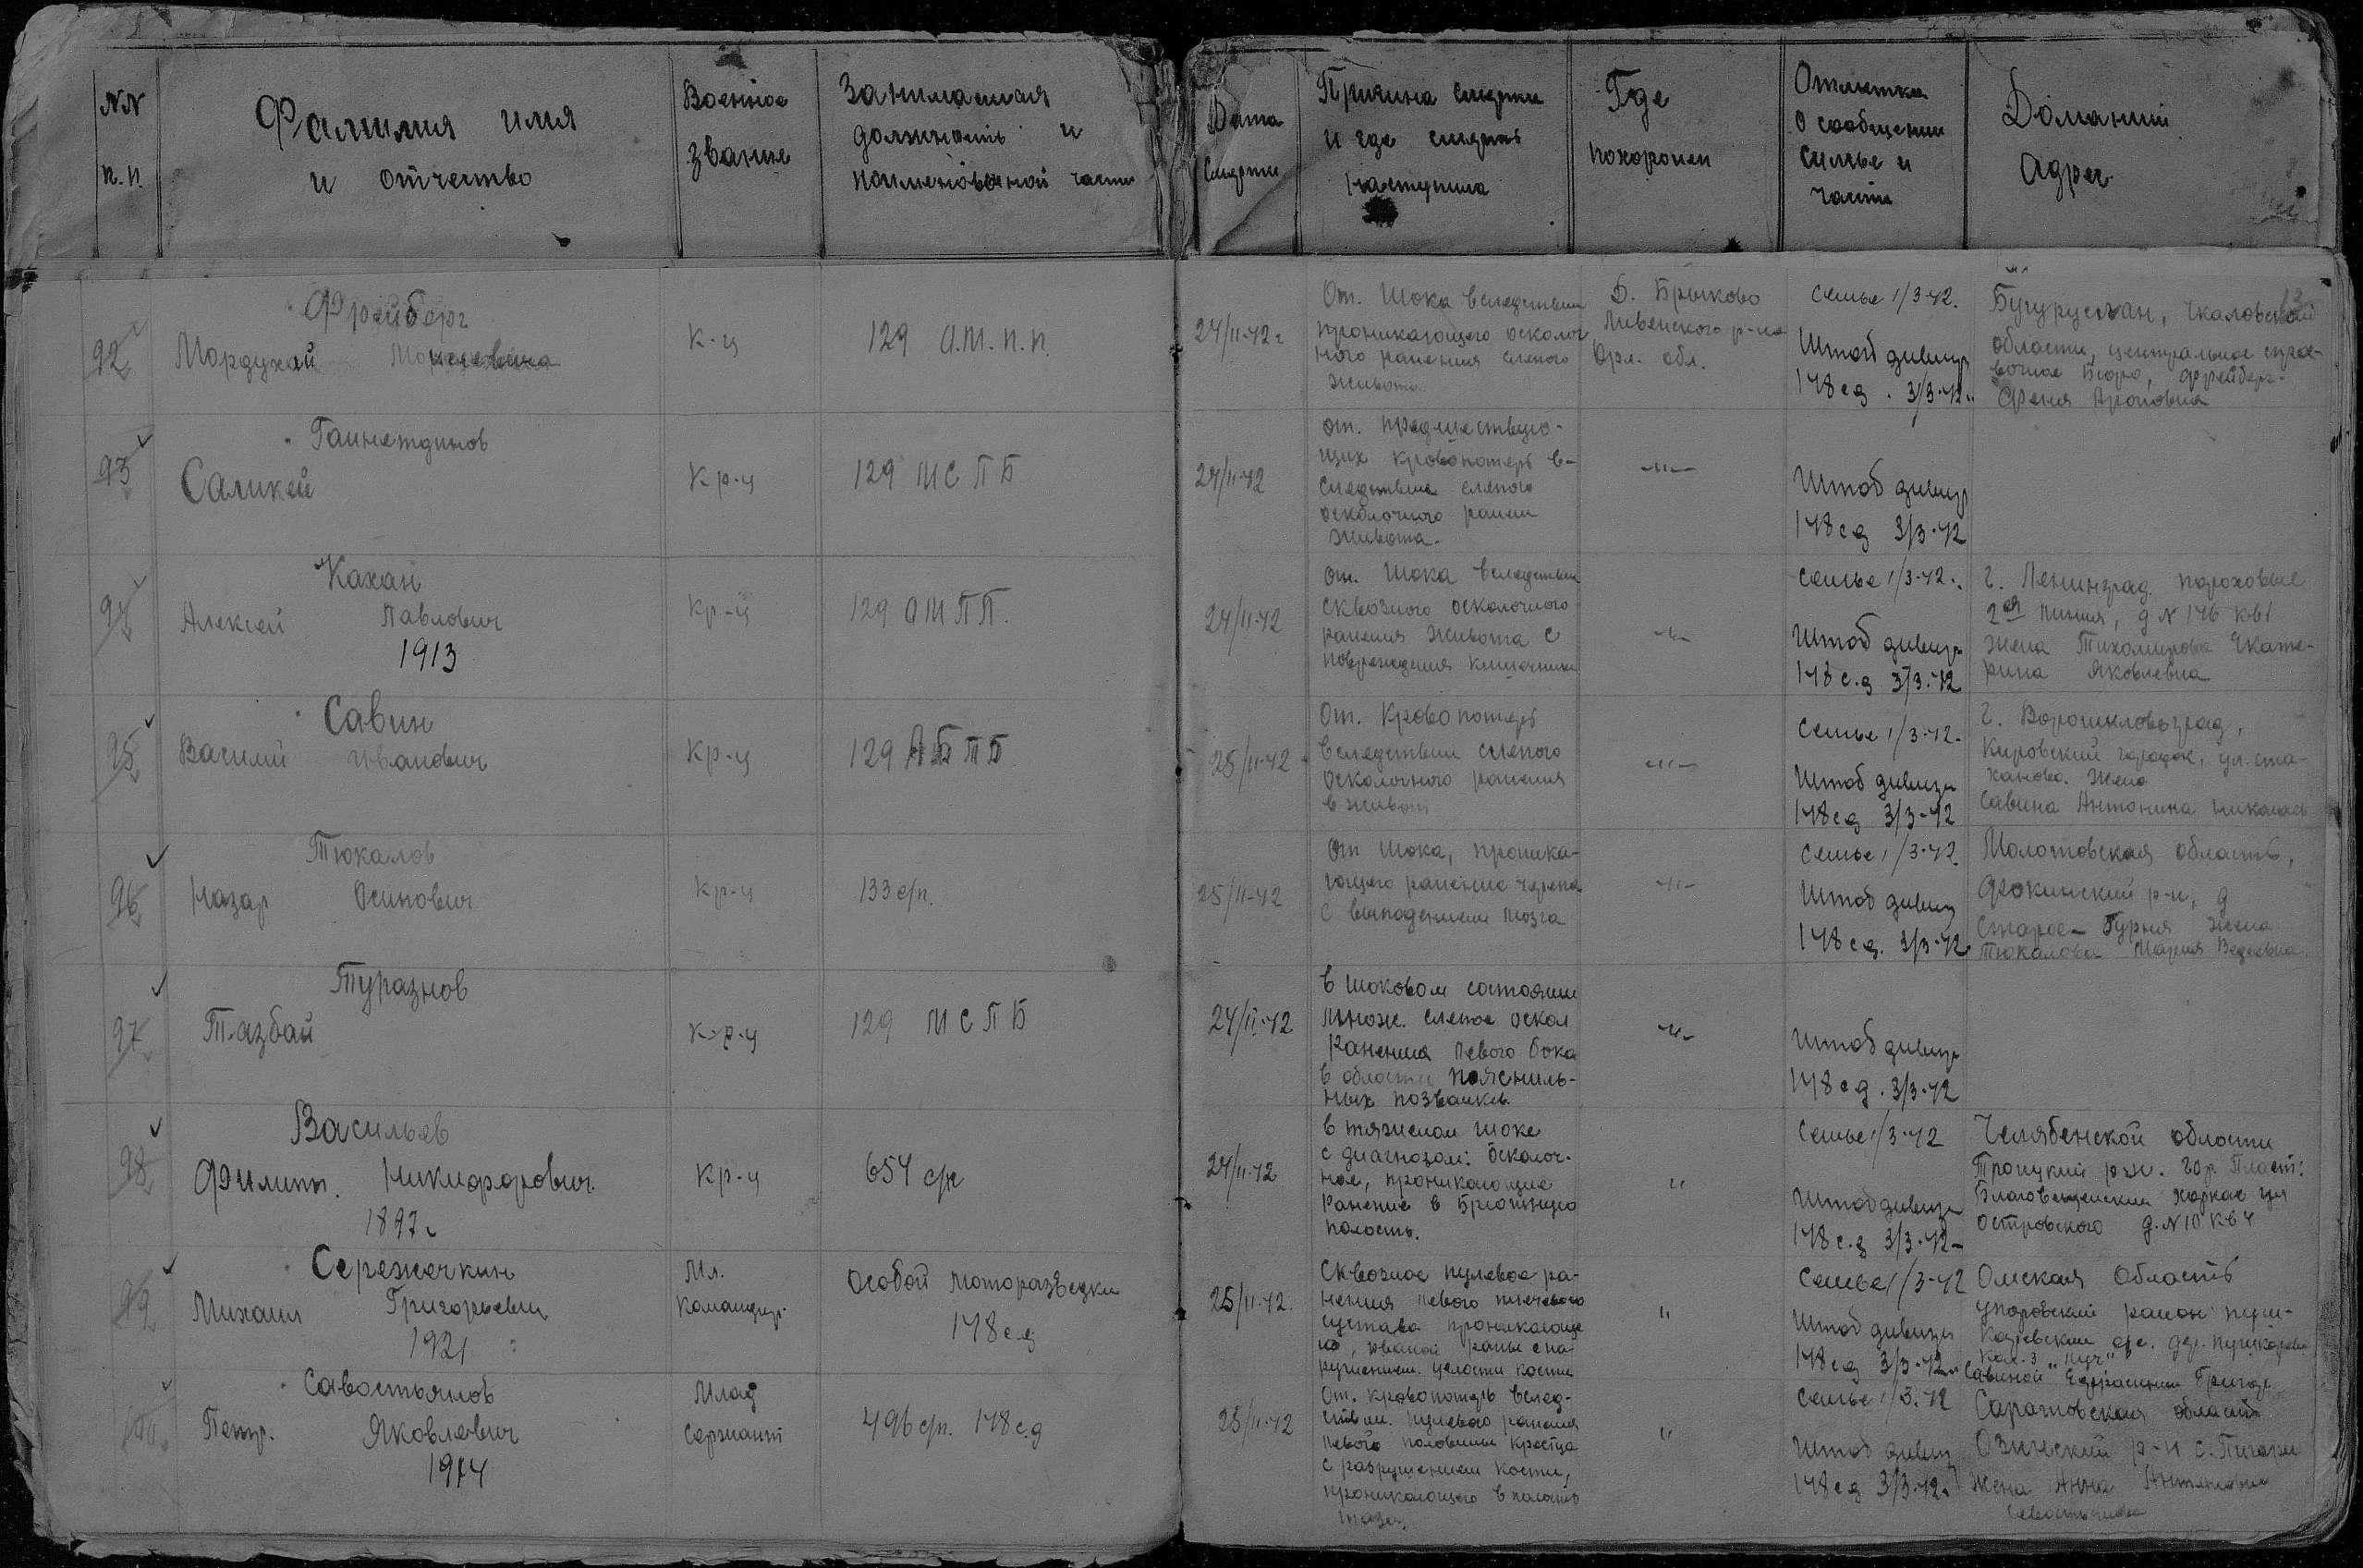 NN
п.п.
Фамилия имя
и отчество
Военное
звание
Занимаемая
должность и
наименований части
Дата
смерти
Причина смерти
и где смерть
наступила
Где
похоронен
Отметка
о сообщении
семье и
части
Домашний
адрес
92
Фрейберг
Мордухай
К-ц
129 О.М.П.П.
24/II-42г
От. Шока вследствии
проникающего осколоч
ного ранения слепого
живота.
Д. Брыково
Ливенского р-на
Орл. обл.
Семье 1/3-42.
Штаб дивиз
148 сд. 3/3-42г.
Бугуруслан, Чкаловской
области, центральное спра-
вочное Бюро, Фрейберг-
Феня Ароновна
93
Гаинетдинов
Саликей
Кр-ц
129 МСПБ
24/II-42
от. предшествую-
щих кровопотерь в-
следствие слепого
осколочного ранен
живота.
-"-
Штаб дивиз
148 сд 3/3-42
94
Кахан
Алексей Павлович
1913
Кр-ц
129 ОМПП.
24/II-42
От. Шока вследствии
сквозного осколочного
ранения живота с
повреждения кишечника
-"-
Семье 1/3-42г.
Штаб дивиз
148 с.д 3/3-42
г. Ленинград пороховые
2ая линия, д N 146 кв 1
жена Тихомирова Екате-
рина Яковлевна
95
Савин
Василий Иванович
Кр-ц
129 АБПБ
25/II-42
От. Кровопотерь
вследствии слепого
осколочного ранения
в живот
-"-
Семье 1/3-42-
Штаб дивизи
148 сд 3/3-42
г. Ворошиловоград,
Кировский городок, ул. ста-
ханова. Жена
Савина Антонина
96
Тюкалов
Назар Осипович
Кр-ц
133 с/п.
25/II-42
От шока, проника-
ющего ранение черепа
с выпадением мозга
-"-
Семье 1/3-42
Штаб дивиз
148 сд. 3/3-42
Молотовская область,
Фокинский р-н, д
Старое- Гурня жена
Тюкалова Мария
97
Туразнов
Тазбай
К-р-ц
129 МСПБ
24/II-42
в шоковом состоянии
множ. слепое оскол
ранения левого бока
в области пояснить-
ных позвонков.
-"-
Штаб дивиз
148 сд. 3/3-42
98
Васильев
Филипп. Никифорович
1897г
Кр-ц
654 с/п
24/II-42
в тяжелом шоке
с диагнозом: осколоч-
ное, проникающие
ранение в брюшную
полость.
"
Семье 1/3-42
Штаб дивизи
148 с.д 3/3-42-
Челябенской области
Троицкий р-н. гор Пласт:
Благовещенский
Островского д. N 10 кв 4
99
Сережечкин
Михаил Григорьевич
1921
Мл.
командир.
Особой моторазведки
148 сд
25/II-42.
Сквозное пулевое ра-
нения левого плечевого
сустава проникающе
го, рваной раны с на-
рушением целости кости
"
Семье 1/3-42
Штаб дивизи
148 сд 3/3-42г.
Омская область
упоровский район
100.
Савостьянов
Петр. Яковлевич
1914
Млад
Сержант
496 с/п. 148 с.д
25/II-42
От. кровопотерь вслед-
ствии. пулевого ранения
левого половины крестца
с разрушением кости,
проникающего в полость
таза.
"
Семье 1/3.42
Штаб дивиз
148 сд 3/3-42г.
Саратовская область
Озинский р-н с. Пигари
Жена Анна